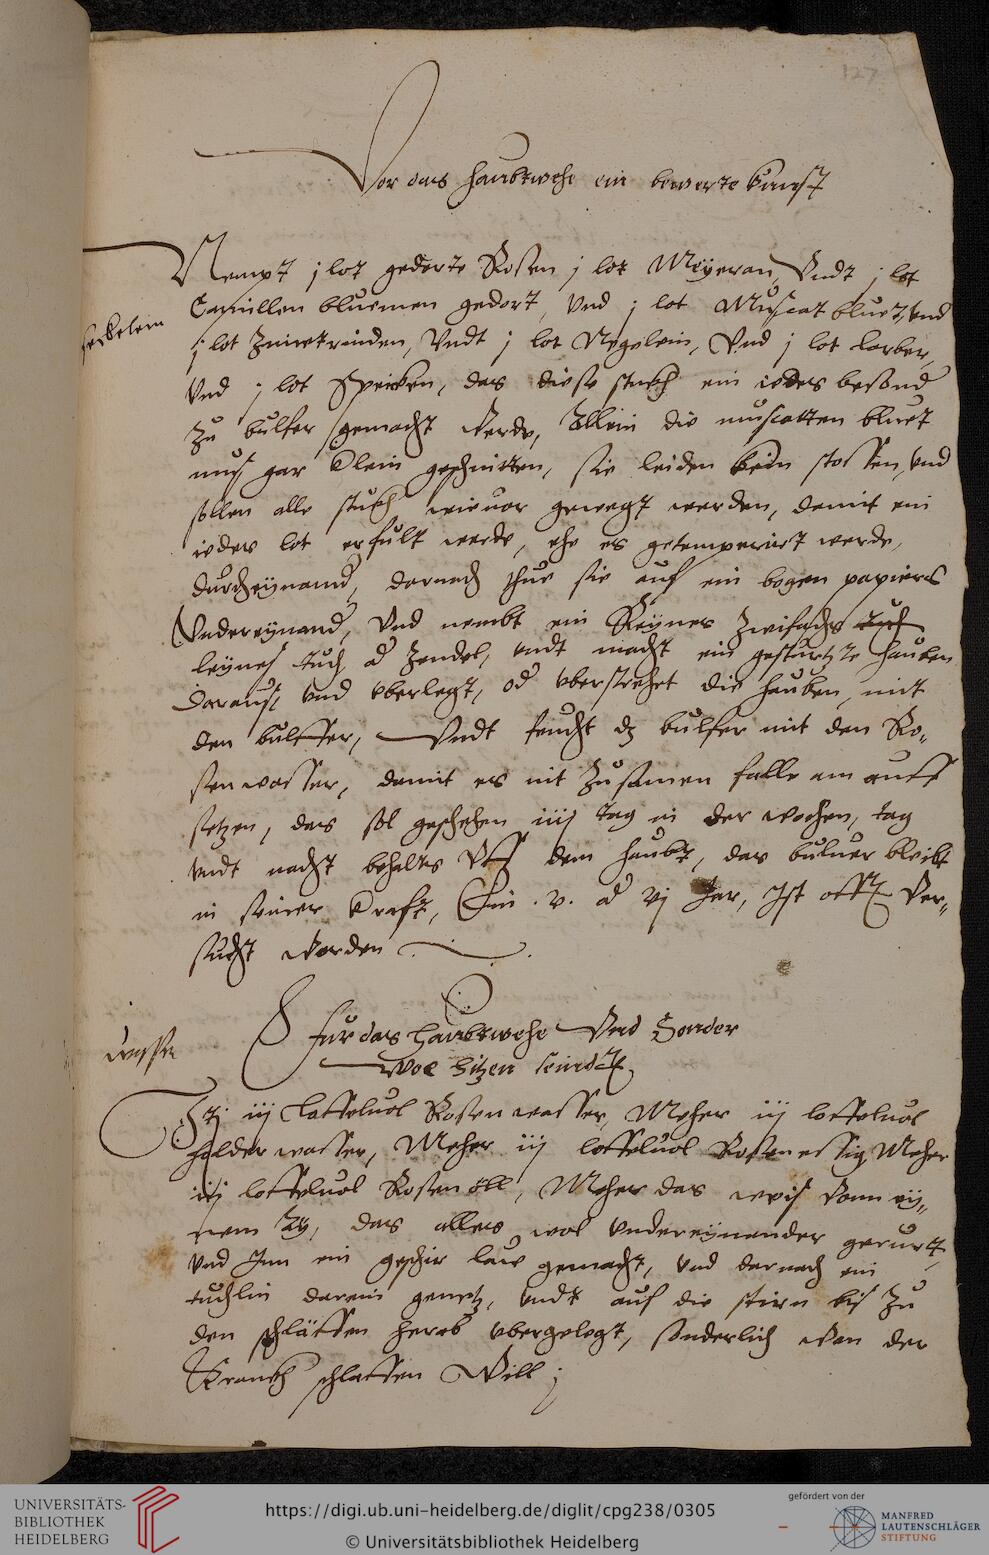 127
Vor das haubtwehe ein bewerte kunst
Nempt j lot gederte Rosen j lot Meÿeran, Vndt j lot
Camillen bluemen gedort, Vnd j lot Muscat bluet, Vnd
seckelein
j lot Zimetrinden, Vndt j lot Negelein, Vnd j lot Lorber,
Vnd j lot Speicken, das diese stuckh ein iedes besond
Zu bulfer gemacht werde, Allein die muscatten bluet
mus gar klein geschnitten, sie leiden kein stossen, Vnd
sollen alle stuckh wie vor gewegt werden, damit ein
iedes lot erfult werde, ehe es getemperiert werde,
durcheynand, darnach thue sie auf ein bogen papiers
Vndereynand, Vnd nembt ein Reÿnes Zwifachs tuch
leÿnes tuch od Zendel, Vndt macht ein gesturtzte hauben
daraus, Vnd vberlegt, od vberstrehet die hauben, mit
den bulffer, Vndt feucht dz bulfer mit den Ro-
senwasser, damit es nit Zusamen falle am auff
setzen, das sol geschehen iiij tag in der wochen, tag
Vndt nacht behaltes Vff dem haubt, das buluer bleibt
in seiner krafft, Ein .v. od vj Jar, Ist offt Ver-
sucht worden
wasser
Fur das haubtwehe Vnd Sonder
Wol hitzen seindt
iij loffeluol Rosenwasser, Meher iij loffeluol
holderwasser, Meher iij loffeluol Rosenessig Meher
iij loffeluol Rosenöll, Meher das weis vonn eÿ-
nem Aÿ, das alles wol Vndereÿnander gerurt,
Vnd Inn ein geschir law gemacht, Vnd darnach ein
tuchlin darein genetz, Vndt auf die stirn bis Zu
den schläffen herab vbergelegt, sonderlich wan der
Kranckh schlaffen Will
UNIVERSITÄTS-
BIBLIOTHEK
HEIDELBERG
https://digi.ub.uni-heidelberg.de/diglit/cpg238/0305
© Universitätsbibliothek Heidelberg
gefördert von der
MANFRED
LAUTENSCHLÄGER
STIFTUNG